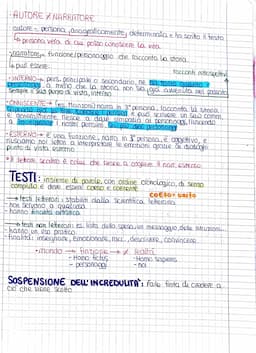 ·AUTORE ≠ NARRATORE
autore = persona, anagraficamente determinata e ha scritto il testo
↳ persona vera di cui posso conoscere la vita.
narratore = funzione/personaggio che racconta la storia
↳ può essere: racconti retrospettivi
·INTERNO → pers. principale o secondario, ha
a meno che la storia non sia già avvenuta nel passato
sempre il suo punto di vista, interno
·ONNISCIENTE → (es. Manzoni) narra in 3ª persona, racconta la storia
e può scrivere un suo comm.
e generalmente riesce a dare ai personaggi, filtrando
i nostri pensieri
·ESTERNO → è una funzione, narra in 3ª persona, è oggettivo, e
riusciamo noi lettori a interpretare le emozioni grazie ai dialoghi
punto di vista esterno
il lettore
TESTI: insieme di parole, con ordine cronologico, di senso
compiuto e deve essere coeso e coerente
coeso = unito
→ testi letterari: stabiliti dalla scientifica letteraria
·non servono a qualcosa
·hanno finalità artistica
→ testi non letterari: es. lista della spesa, un messaggio, delle istruzioni...
·hanno un uso pratico
·finalità: insegnare, emozionare, descrivere, convincere
·mondo → finzione → ≠ realtà
- Homo fictus - Homo sapiens
- personaggi - noi
SOSPENSIONE DELL'INCREDULITÀ: fare finta di credere a
ciò che viene scritto